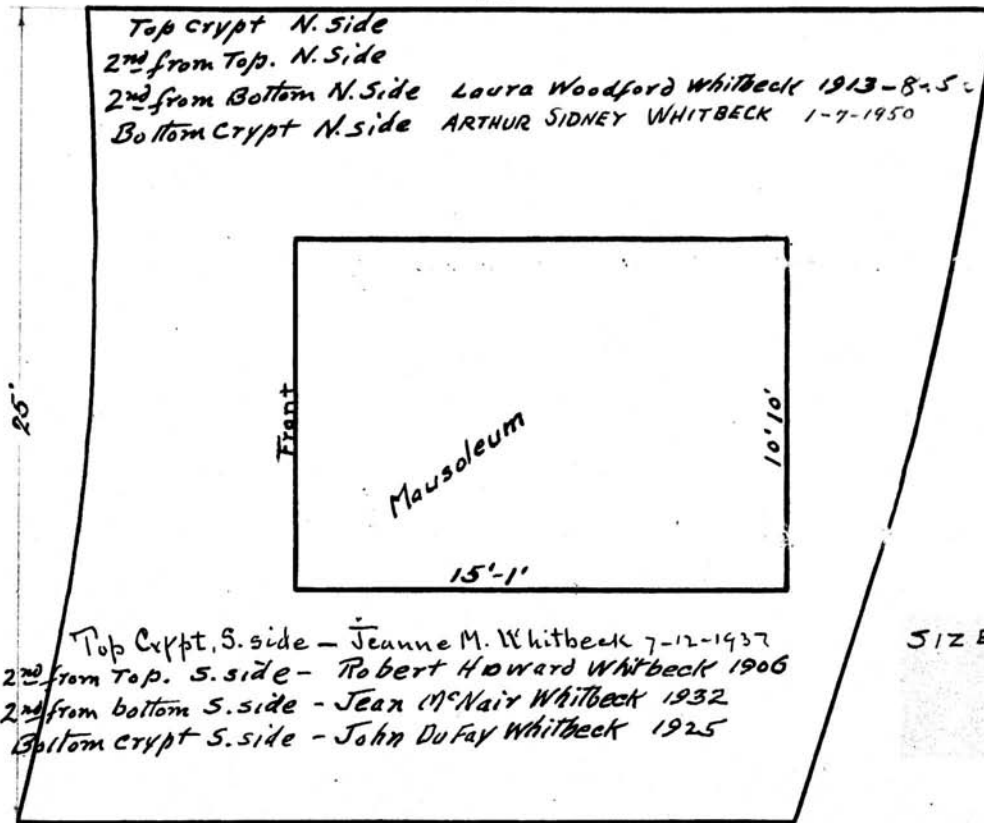 Top Crypt N. Side
2nd from Top. N. Side
2nd from Bottom N. Side Laura Woodford Whitbeck 1913
Bottom Crypt N. side ARTHUR SIDNEY WHITBECK 1-7-1950
25'
Front
Mausoleum
10' 10'
15'-1'
Top Crypt, S. side - Jeanne M. Whitbeck 7-12-1937
2nd from Top. S. side - Robert Howard Whitbeck 1906
2nd from bottom S. side - Jean McNair Whitbeck 1932
Bottom crypt S. side - John DuFay Whitbeck 1925